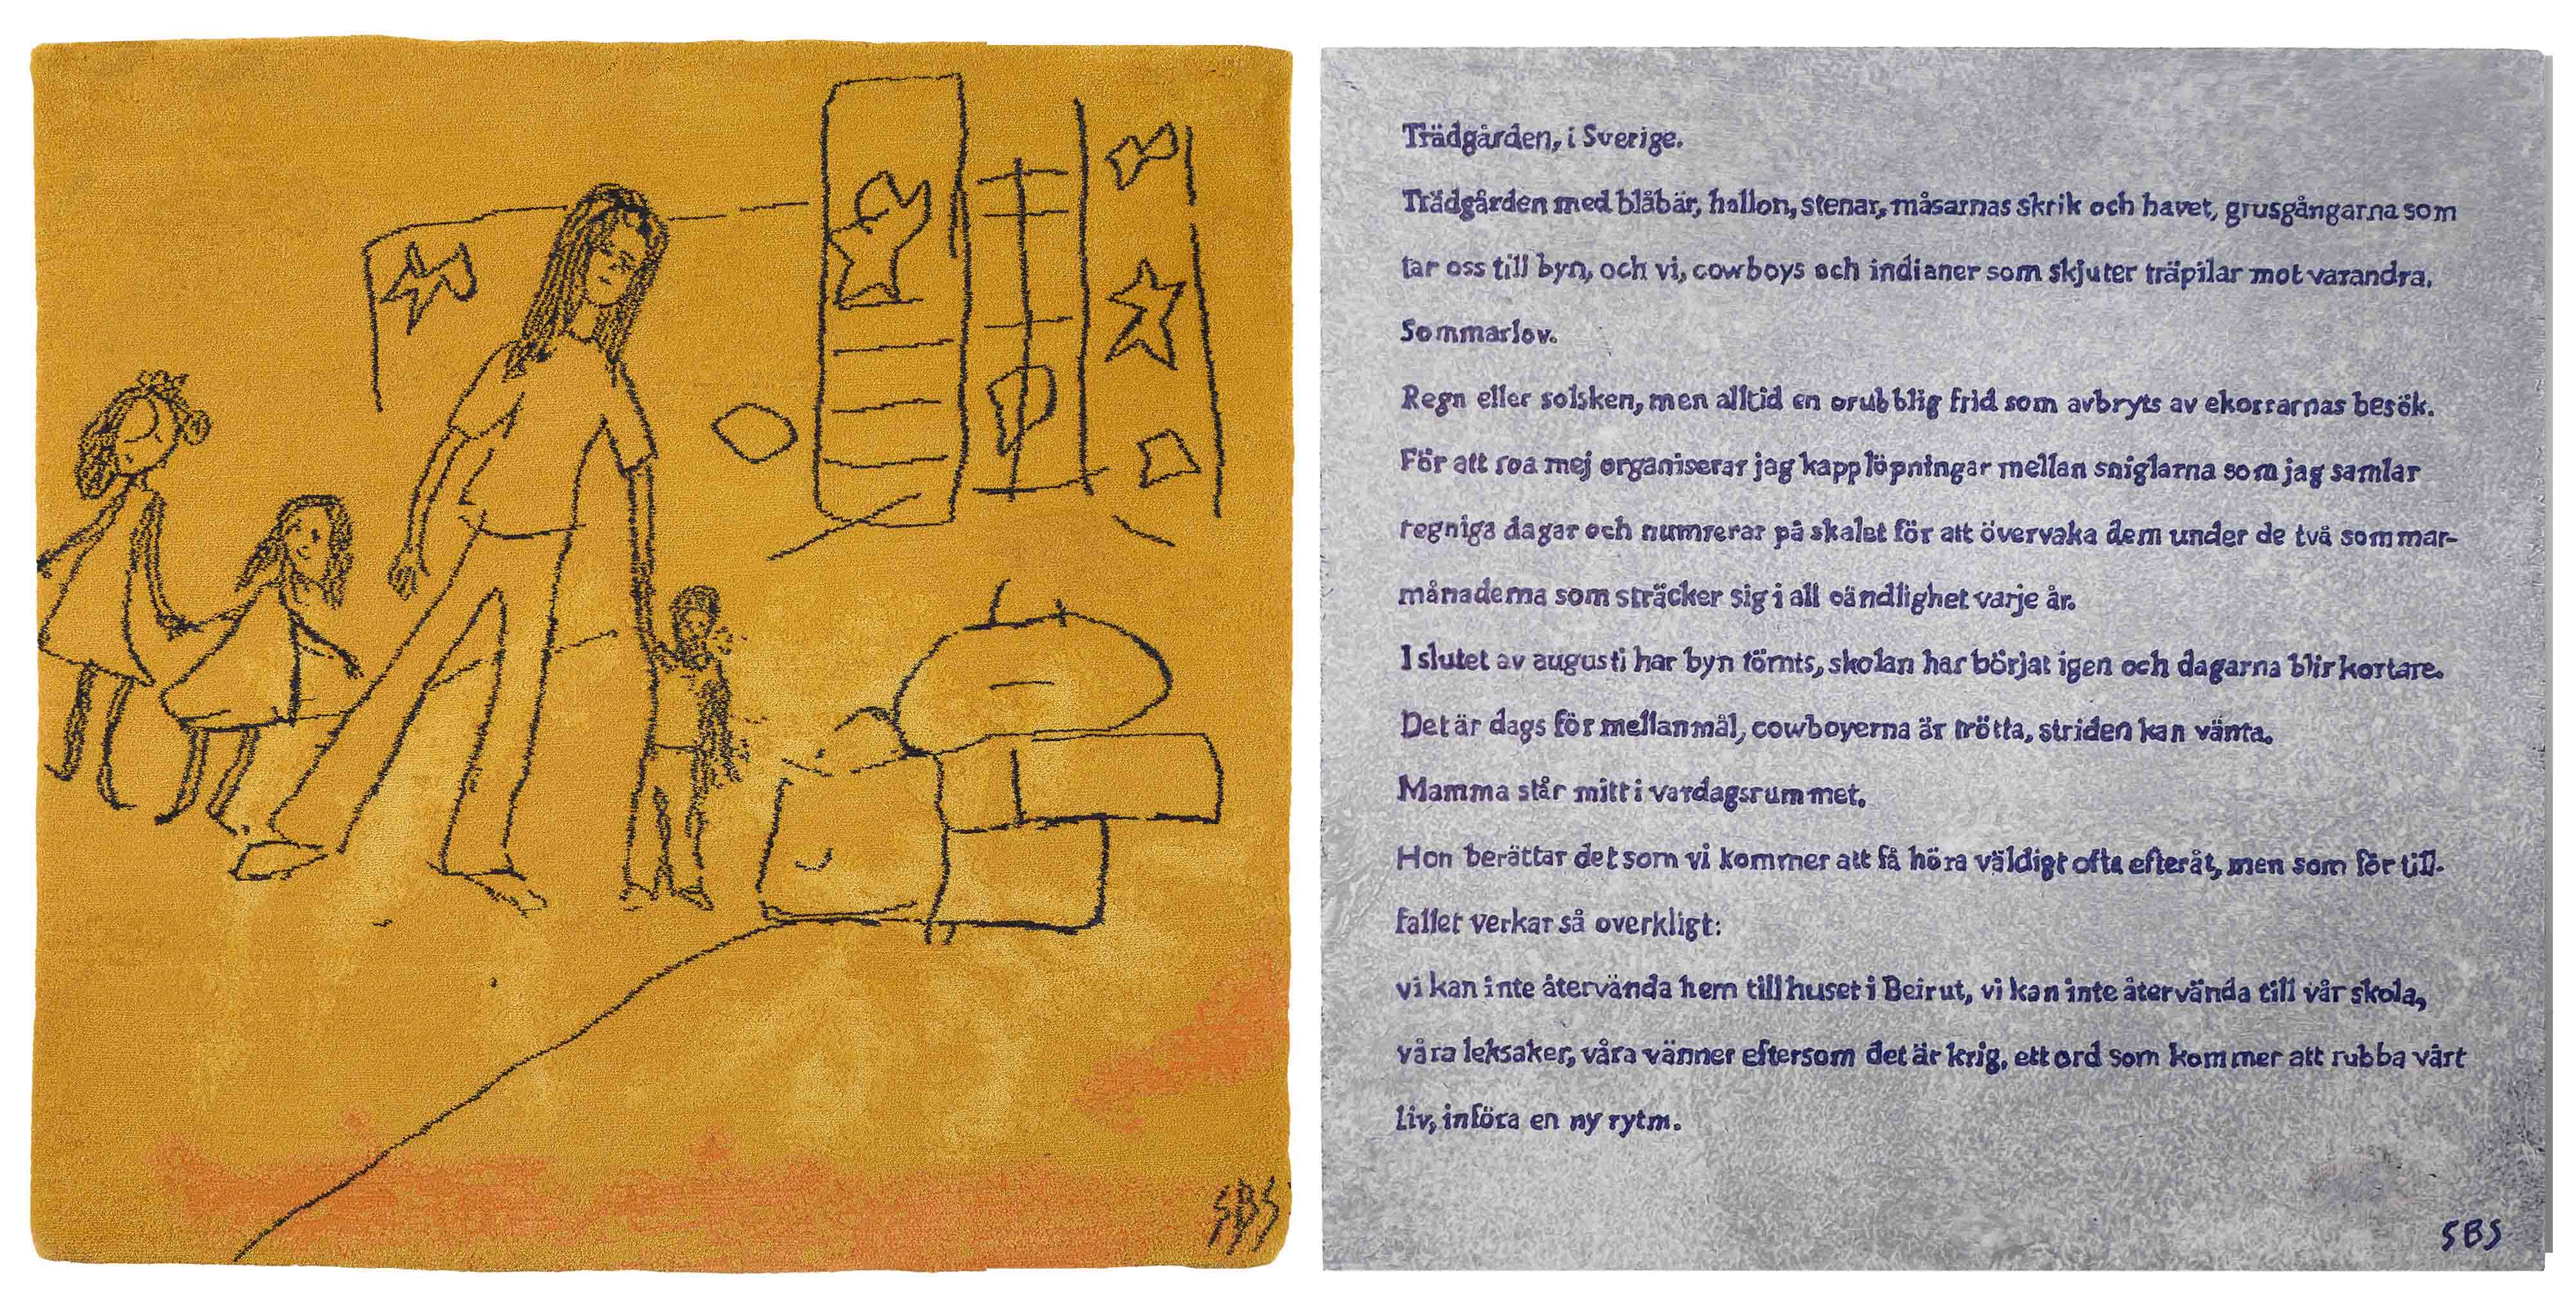 SBS
Trädgården, i Sverige.
Trädgården med blåbär, hallon, stenar, måsarnas skrik och havet, grusgångarna som
tar oss till byn, och vi, cowboys och indianer som skjuter träpilar mot varandra.
Sommarlov.
Regn eller solsken, men alltid en orubblig frid som avbryts av ekorrarnas besök.
För att roa mej organiserar jag kapplöpningar mellan sniglarna som jag samlar
regniga dagar och numrerar på skalet för att övervaka dem under de två sommar-
månaderna som sträcker sig i all oändlighet varje år.
I slutet av augusti har byn tömts, skolan har börjat igen och dagarna blir kortare.
Det är dags för mellanmål, cowboyerna är trötta, striden kan vänta.
Mamma står mitt i vardagsrummet.
Hon berättar det som vi kommer att få höra väldigt ofta efteråt, men som för till-
fallet verkar så overkligt:
vi kan inte återvända hem till huset i Beirut, vi kan inte återvända till vår skola,
våra leksaker, våra vänner eftersom det är krig, ett ord som kommer att rubba vårt
liv, införa en ny rytm.
SBS